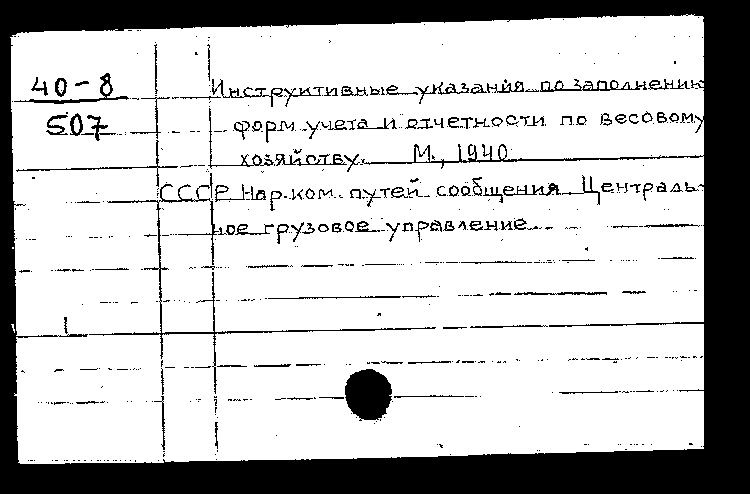 40-8
507
Инструктивные указания по заполнению
форм учета и отчетности по весовому
хозяйству. М., 1940
СССР Нар.ком. путей сообщения. Централь-
ное грузовое управление.